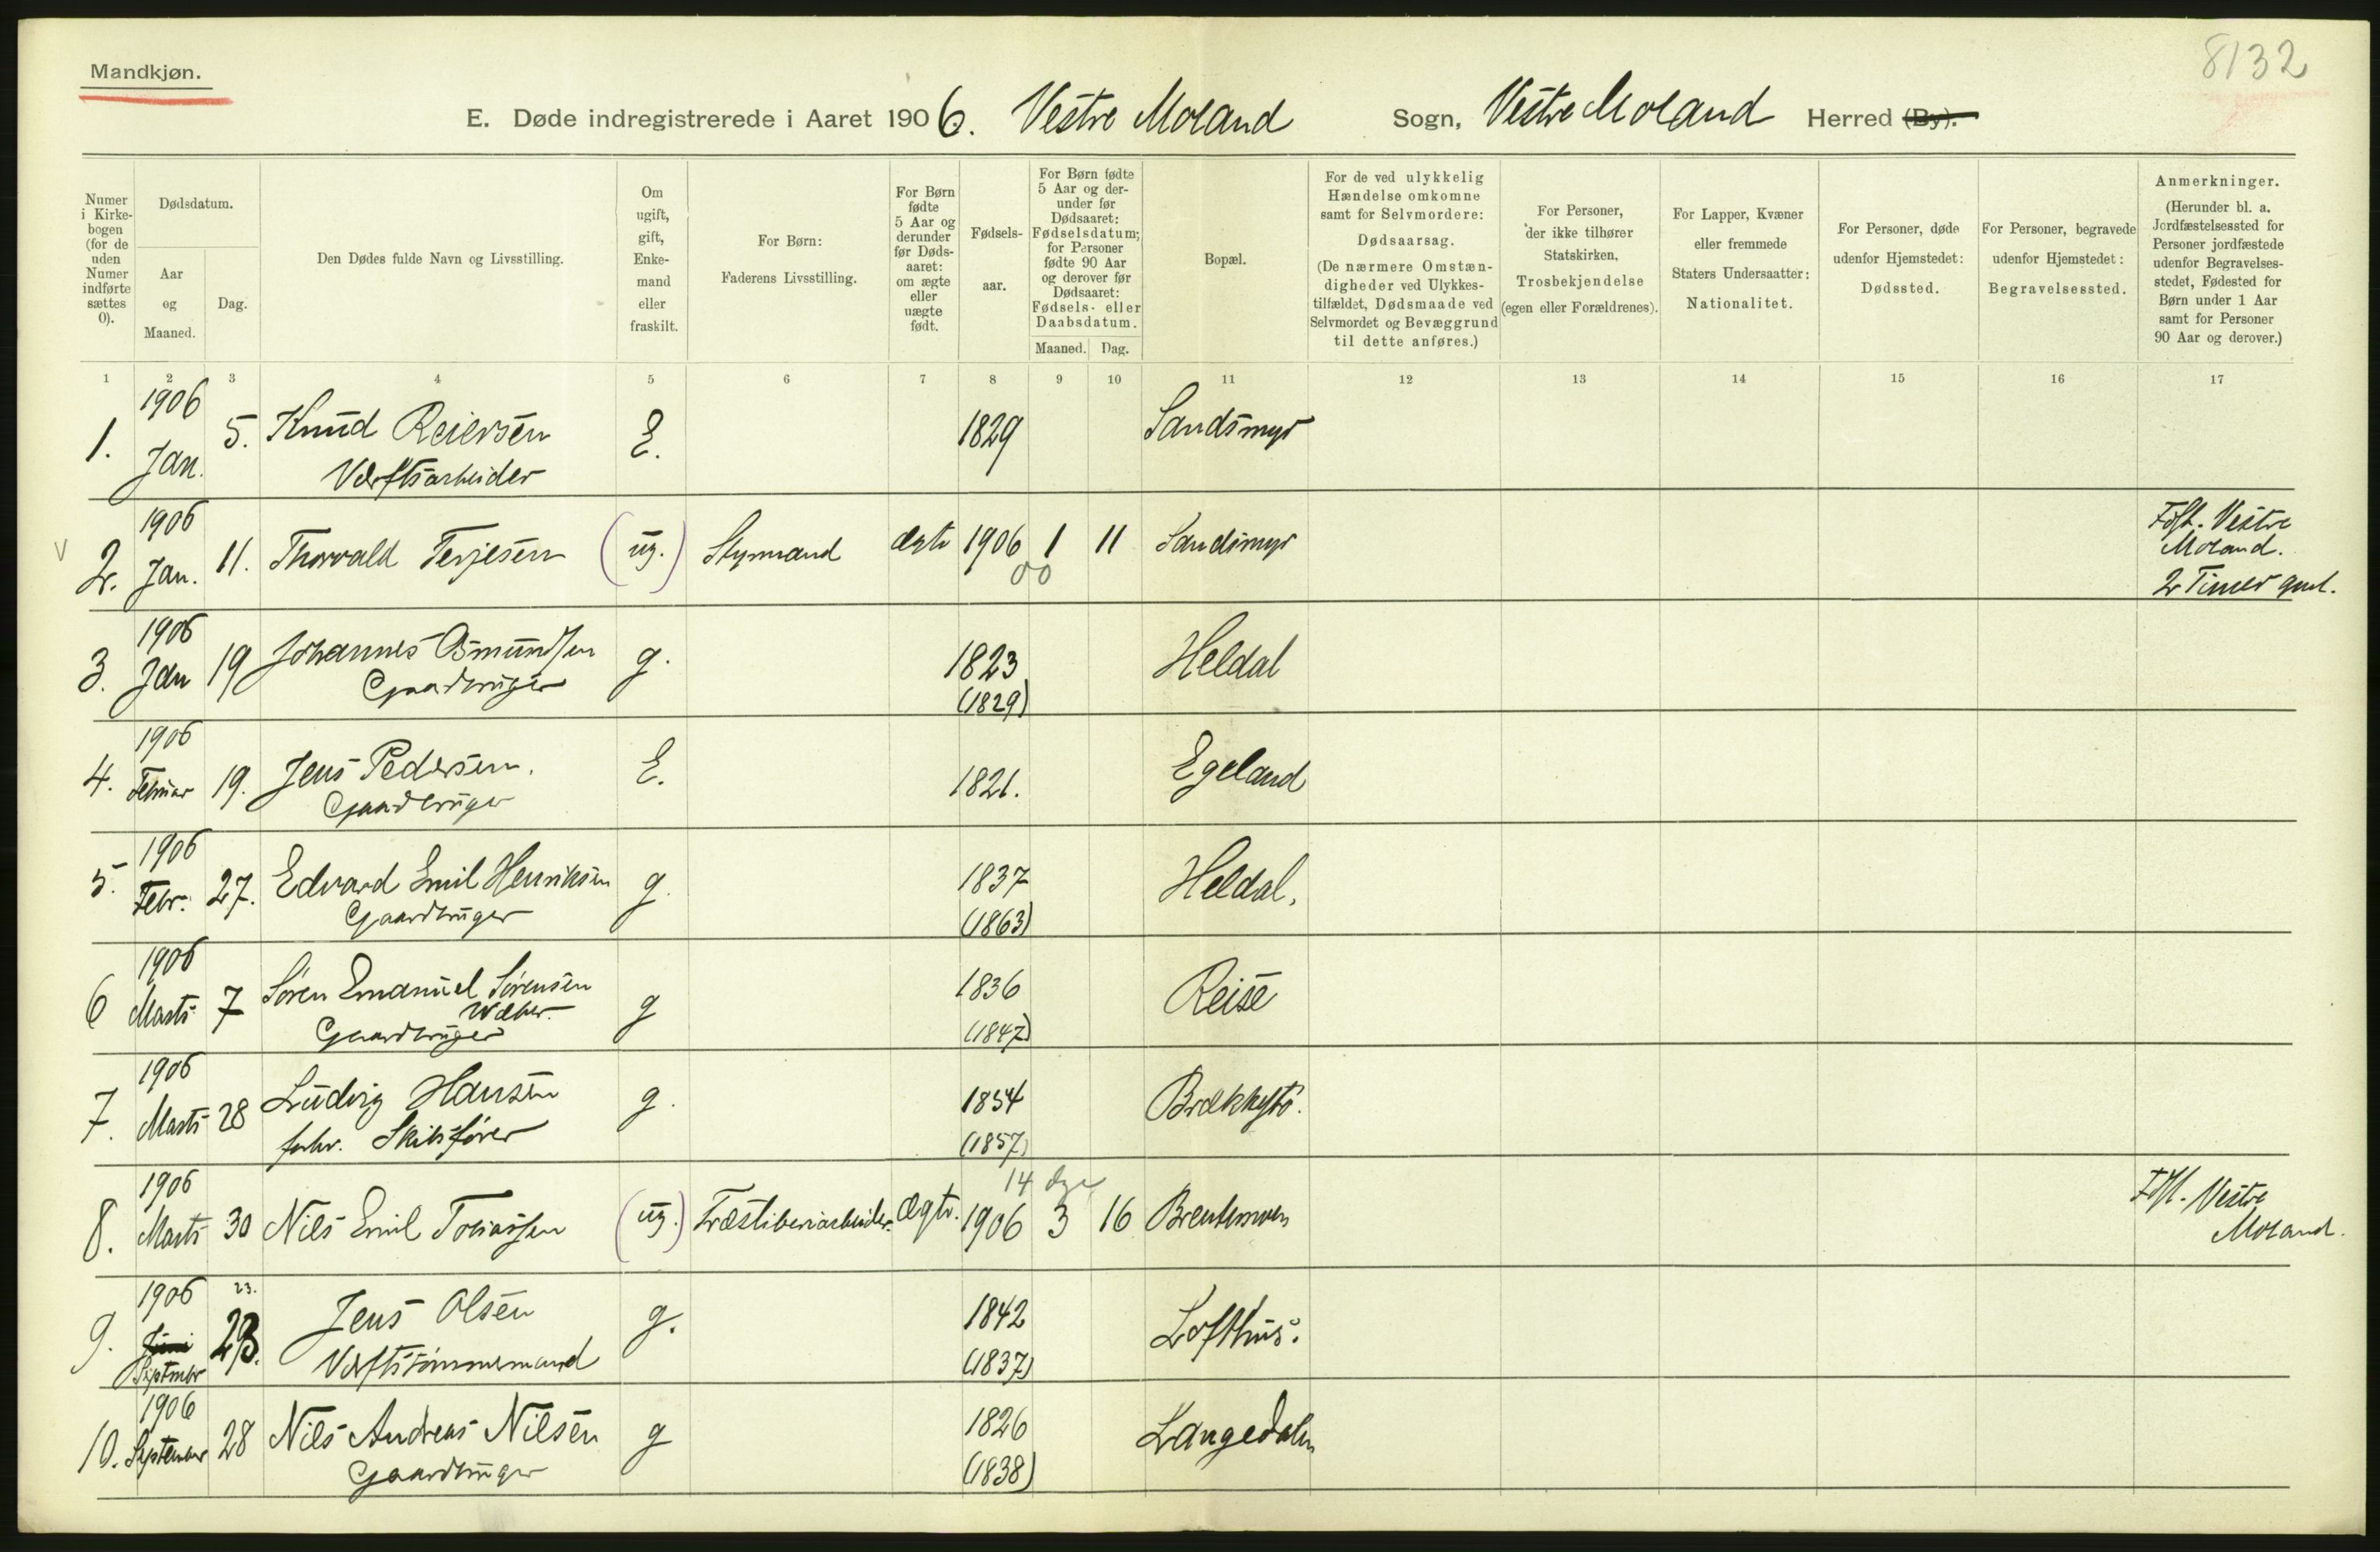 Mandkjøn.
8132
E. Døde indregistrerede i Aaret 1906. Vestre Moland Sogn, Vestre Moland Herred (By).
Numer i Kirkebogen (for de uden Numer indførte sættes 0).
Dødsdatum.
Aar og Maaned.
Dag.
Den Dødes fulde Navn og Livsstilling.
Om ugift, gift, Enkemand eller fraskilt.
For Børn: Faderens Livsstilling.
For Børn fødte 5 Aar og derunder før Dødsaaret: om ægte eller uægte født.
Fødselsaar.
For Børn fødte 5 Aar og derunder før Dødsaaret: Fødselsdatum; for Personer fødte 90 Aar og derover før Dødsaaret: Fødsels- eller Daabsdatum.
Maaned. Dag.
Bopæl.
For de ved ulykkelig Hændelse omkomne samt for Selvmordere: Dødsaarsag. (De nærmere Omstændigheder ved Ulykkestilfældet, Dødsmaade ved Selvmordet og Bevæggrund til dette anføres.)
For Personer, der ikke tilhører Statskirken, Trosbekjendelse (egen eller Forældrenes).
For Lapper, Kvæner eller fremmede Staters Undersaatter: Nationalitet.
For Personer, døde udenfor Hjemstedet: Dødssted.
For Personer, begravede udenfor Hjemstedet: Begravelsessted.
Anmerkninger. (Herunder bl. a. Jordfæstelsessted for Personer jordfæstede udenfor Begravelsesstedet, Fødested for Børn under 1 Aar samt for Personer 90 Aar og derover.)
1 2 3 4 5 6 7 8 9 10 11 12 13 14 15 16 17
1906
1. Jan. 5. Knud Reiersen E. 1829 Sandsmyr
Værftsarbeider
1906 Fdst. Vestre
V 2. Jan. 11. Thorvald Terjesen (ug.) Styrmand ægte 1906 1 11 Sandsmyr Moland.
00 2 Timer gml.
1906
3. Jan 19 Johannes Osmundsen g. 1823 Heldal
Gaardbruger (1829)
1906
4. Februar 19. Jens Pedersen. E. 1821. Egeland
Gaardbruger
1906
5. Febr. 27. Edvard Emil Henriksen g. 1837 Heldal.
Gaardbruger (1863)
1906
6 Marts 7 Søren Emanuel Sørensen g 1836 Reise
Weber.
Gaardbruger (1847)
1906
7. Marts 28 Ludvig Hansen g. 1854 Brækkestø.
forhv. Skibsfører (1857)
1906 14 dge
8. Marts 30 Nils Emil Tobiassen (ug.) Træsliberiarbeider. Ægte. 1906 3 16 Brentemoen Fdst. Vestre
Moland.
1906 23.
9. Juni 23. Jens Olsen g. 1842 Lofthus.
September Værftstømmermand (1837)
1906
10. September 28 Nils Andreas Nilsen g 1826 Langedalen
Gaardbruger (1838)